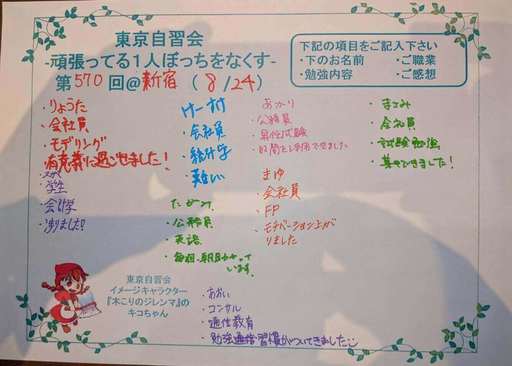 東京自習会
-頑張ってる1人ぼっちをなくす-
第570回@新宿 (8/24)
下記の項目をご記入下さい
・下のお名前 ・ご職業
・勉強内容 ・ご感想
・りょうた
・会社員
・モデリング
・有意義に過ごせました!
・学生
・会計学
・けーすけ
・会社員
・統計学
・難しい
・たかみ
・公務員
・英語
・毎朝
います。
・あかり
・公務員
・昇任試験
・まゆ
・会社員
・FP
・モチベーション上が
りました
・まさみ
・会社員
・試験勉強
・集中できました!
東京自習会
イメージキャラクター
『木こりのジレンマ』の
キコちゃん
・あおい
・コンサル
・通信教育
・勉強 習慣がついてきました